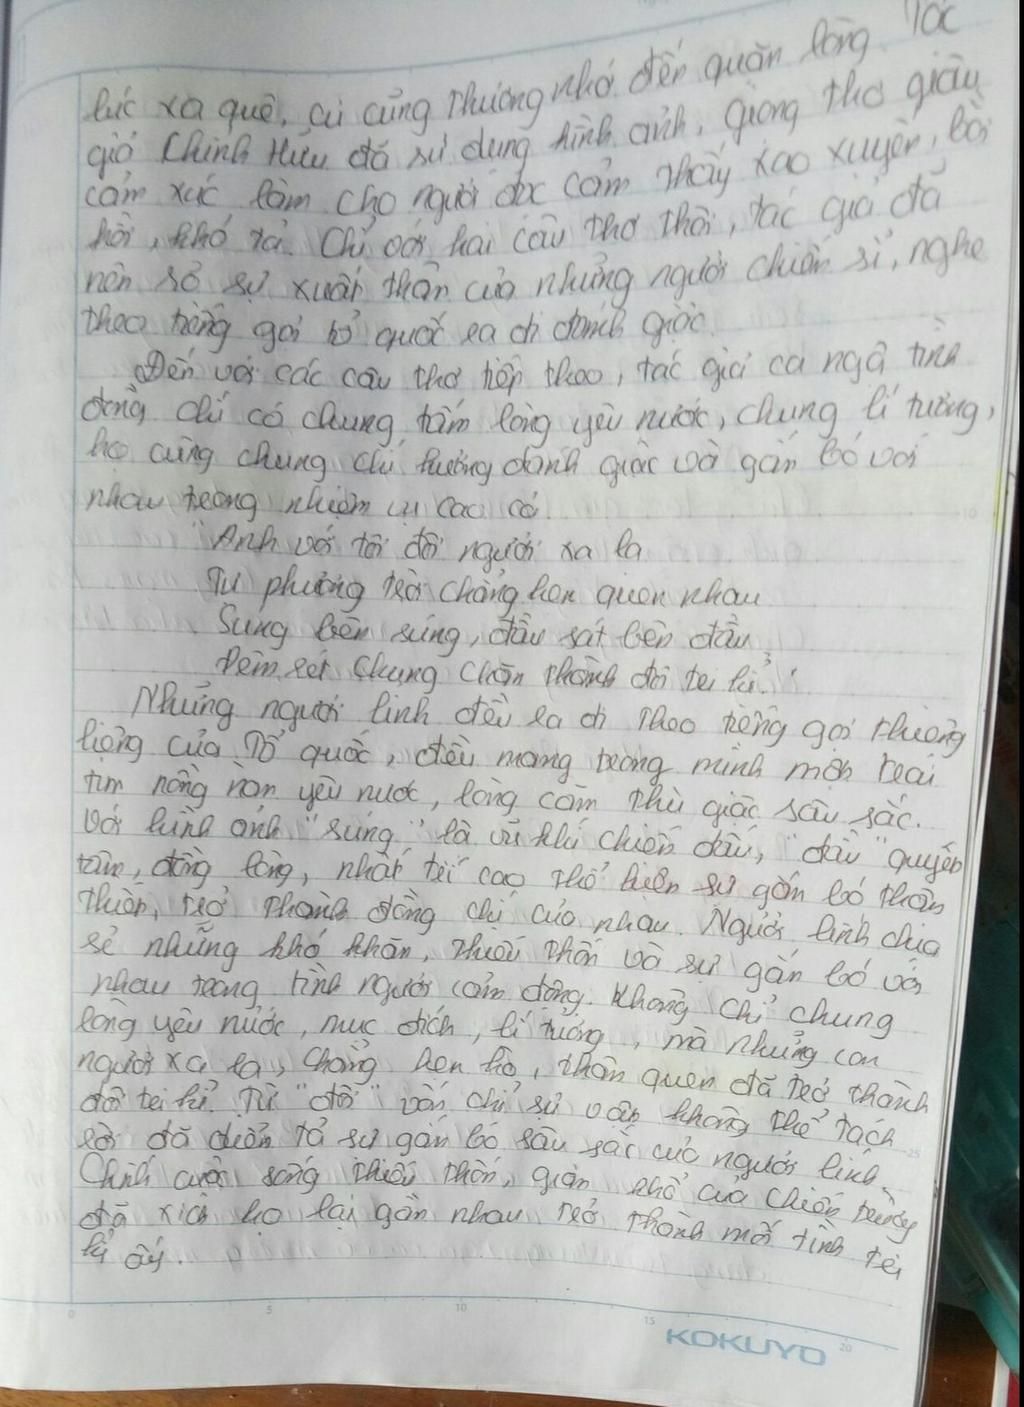 lúc xa quê, ai cũng thương nhớ đến quặn lòng. Tác
giả Chính Hữu đã sử dụng hình ảnh, giọng thơ giàu
cảm xúc làm cho người đọc cảm thấy xao xuyến, bồi
hồi, khó tả. Chỉ với hai câu thơ thôi, tác giả đã
nên số sự xuất thân của những người chiến sĩ, nghe
theo tiếng gọi tổ quốc ra đi đánh giặc.
Đến với các câu thơ tiếp theo, tác giả ca ngợi tình
đồng chí có chung tấm lòng yêu nước, chung lí tưởng,
họ cùng chung chí hướng đánh giặc và gắn bó với
nhau trong nhiệm vụ cao cả.
"Anh với tôi đôi người xa lạ
Tự phương trời chẳng hẹn quen nhau
Súng bên súng, đầu sát bên đầu
Đêm rét chung chăn thành đôi tri kỉ."
Những người lính đều ra đi theo tiếng gọi thiêng
liêng của Tổ quốc, đều mang trong mình một trái
tim nồng nàn yêu nước, lòng căm thù giặc sâu sắc.
Với hình ảnh "súng" là vũ khí chiến đấu, "đầu" quyết
tâm, đồng lòng, nhất trí cao thể hiện sự gắn bó thân
thiện, trở thành đồng chí của nhau. Người lính chia
sẻ những khó khăn, thiếu thốn và sự gắn bó với
nhau trong tình người cảm động. Không chỉ chung
lòng yêu nước, mục đích, lí tưởng, mà những con
người xa lạ, chẳng hẹn hò, thân quen đã trở thành
đôi tri kỉ. Từ "đôi" vốn chỉ sự vật không thể tách
rời đã diễn tả sự gắn bó sâu sắc của người lính.
Chính cuộc sống thiếu thốn, gian khổ của chiến trường
đã xích họ lại gần nhau trở thành mối tình tri
kỉ ấy.
0 5 10 15 20
KOKUYO